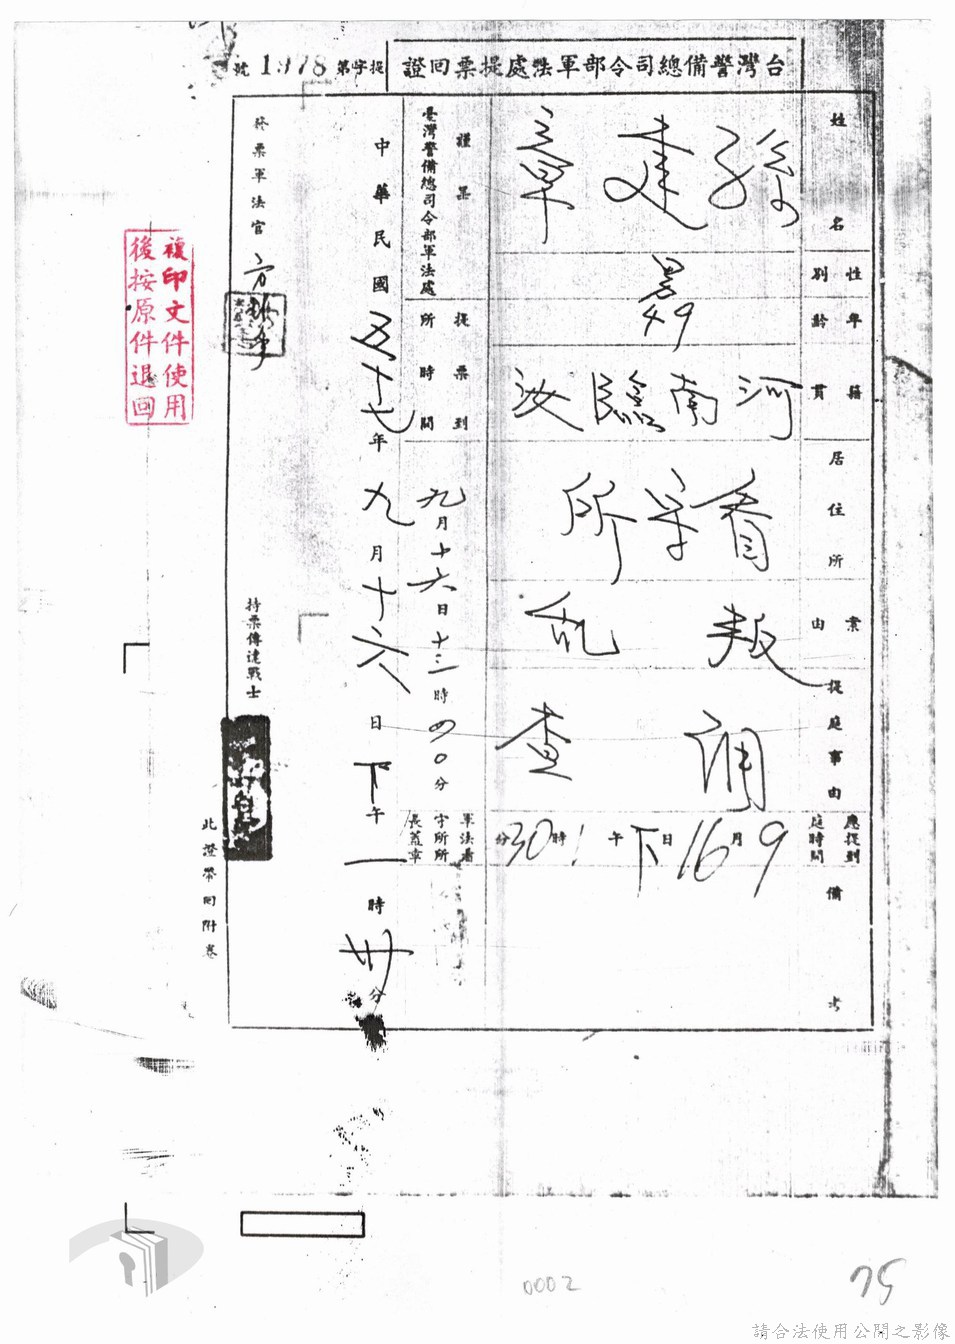 台灣警備總司令部軍法處提票回證
提字第1978號
姓名
孫建章
性別
男
年齡
49
籍貫
河南臨汝
居住所
看守所
案由
叛亂
提庭事由
調查
應提到庭時間
9月16日下午1時30分
備考
謹呈
臺灣警備總司令部軍法處
提票到所時間
九月十六日十三時四〇分
軍法看守所所長蓋章
中華民國五十七年九月十六日下午一時卅分
發票軍法官
方
持票傳達戰士
此證帶回附卷
複印文件使用
後按原件退回
0002
75
請合法使用公開之影像